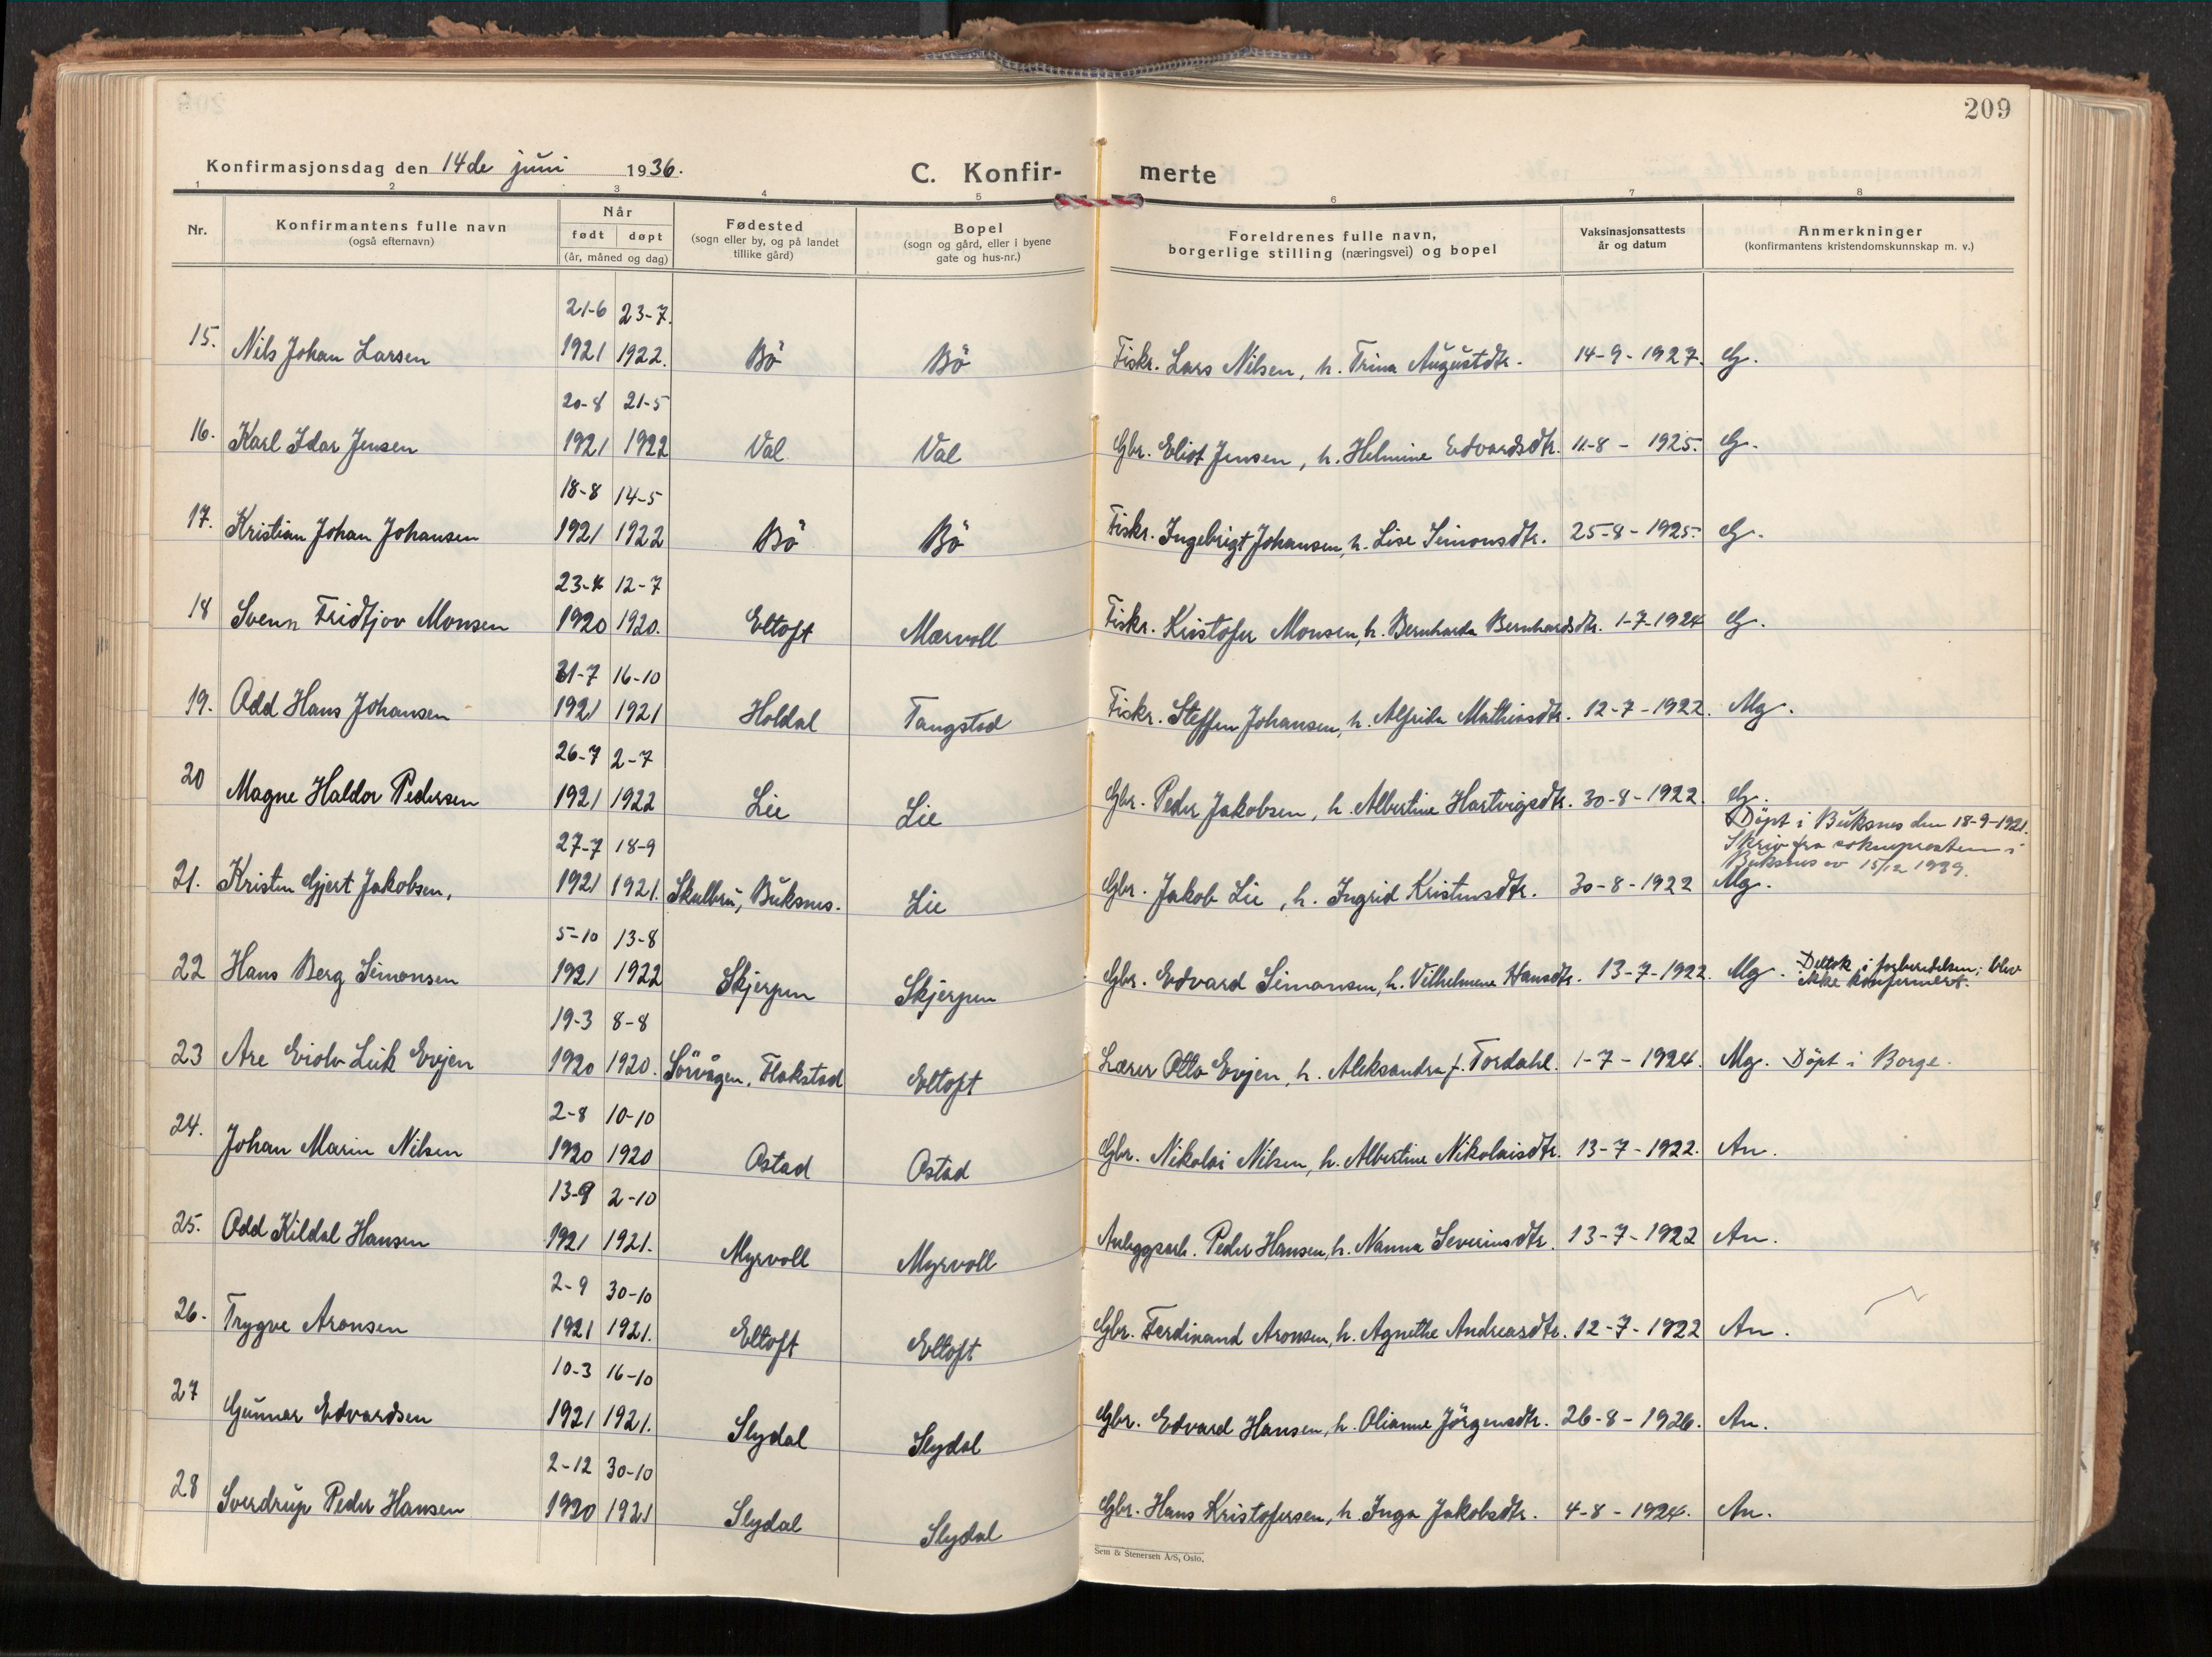 209
Konfirmasjonsdag den 14de juni 1936. C. Konfir- merte
1 2 3 4 5 6 7 8
Nr. Konfirmantens fulle navn (også efternavn) Når født døpt (år, måned og dag) Fødested (sogn eller by, og på landet tillike gård) Bopel (sogn og gård, eller i byene gate og hus-nr.) Foreldrenes fulle navn, borgerlige stilling (næringsvei) og bopel Vaksinasjonsattests år og datum Anmerkninger (konfirmantens kristendomskunnskap m. v.)
21-6 23-7.
15. Nils Johan Larsen 1921 1922. Bö Bö Fiskr. Lars Nilsen, h. Trina Augustdtr. 14-9-1927. G.
20-8 21-5
16. Karl Idar Jensen 1921 1922 Val Val Gbr. Eliot Jensen, h. Helmine Edvardsdtr. 11-8-1925. G.
18-8 14-5
17. Kristian Johan Johansen 1921 1922 Bö Bö Fiskr. Ingebrigt Johansen, h. Lise Simonsdtr. 25-8-1925. G.
23-4 12-7
18 Svenn Fridtjov Monsen 1920 1920. Eltoft Mærvoll Fiskr. Kristofer Monsen, h. Bernharda Bernhardsdtr. 1-7-1924 G.
31-7 16-10
19. Odd Hans Johansen 1921 1921 Holdal Tangstad Fiskr. Steffen Johansen, h. Alfrida Mathiasdtr. 12-7-1922. Mg.
26-7 2-7
20 Magne Haldor Pedersen 1921 1922 Lie Lie Gbr. Peder Jakobsen, h. Albertine Hartvigsdtr. 30-8-1922. G.
27-7 18-9 Döpt i Buksnes den 18-9-1921.
Skriv fra sokneprestem i
Buksnes av 15/12 1939.
21. Kristen Gjert Jakobsen, 1921 1921. Skulbru, Buksnes. Lie Gbr. Jakob Lie, h. Ingrid Kristensdtr. 30-8-1922 Mg.
5-10 13-8
22 Hans Berg Simonsen 1921 1922 Skjerpen Skjerpen Gbr. Edvard Simonsen, h. Vilhelmene Hansdtr. 13-7-1922. Mg. Deltok i forberedelsen; blev
ikke konfirmert.
19-3 8-8
23 Are Eiolv Leik Evjen 1920 1920. Sörvågen, Flakstad Eltoft Lærer Otto Evjen, h. Aleksandra f. Tordahl. 1-7-1924. Mg. Döpt i Borge.
2-8 10-10
24. Johan Marin Nilsen 1920 1920 Ostad Ostad Gbr. Nikolai Nilsen, h. Albertine Nikolaisdtr. 13-7-1922. An.
13-9 2-10
25. Odd Kildal Hansen 1921 1921. Myrvoll Myrvoll Anleggsarb. Peder Hansen, h. Nanna Severinsdtr. 13-7-1922 An.
2-9 30-10
26. Trygve Aronsen 1921 1921. Eltoft Eltoft Gbr. Ferdinand Aronsen, h. Agnethe Andreasdtr. 12-7-1922 An.
10-3 16-10
27 Gunnar Edvardsen 1921 1921. Slydal Slydal Gbr. Edvard Hansen, h. Olianne Jörgensdtr. 26-8-1926. An.
2-12 30-10
28 Sverdrup Peder Hansen 1920 1921 Slydal Slydal Gbr. Hans Kristofersen, h. Inga Jakobsdtr. 4-8-1924. An.
Sem & Stenersen A/S, Oslo.